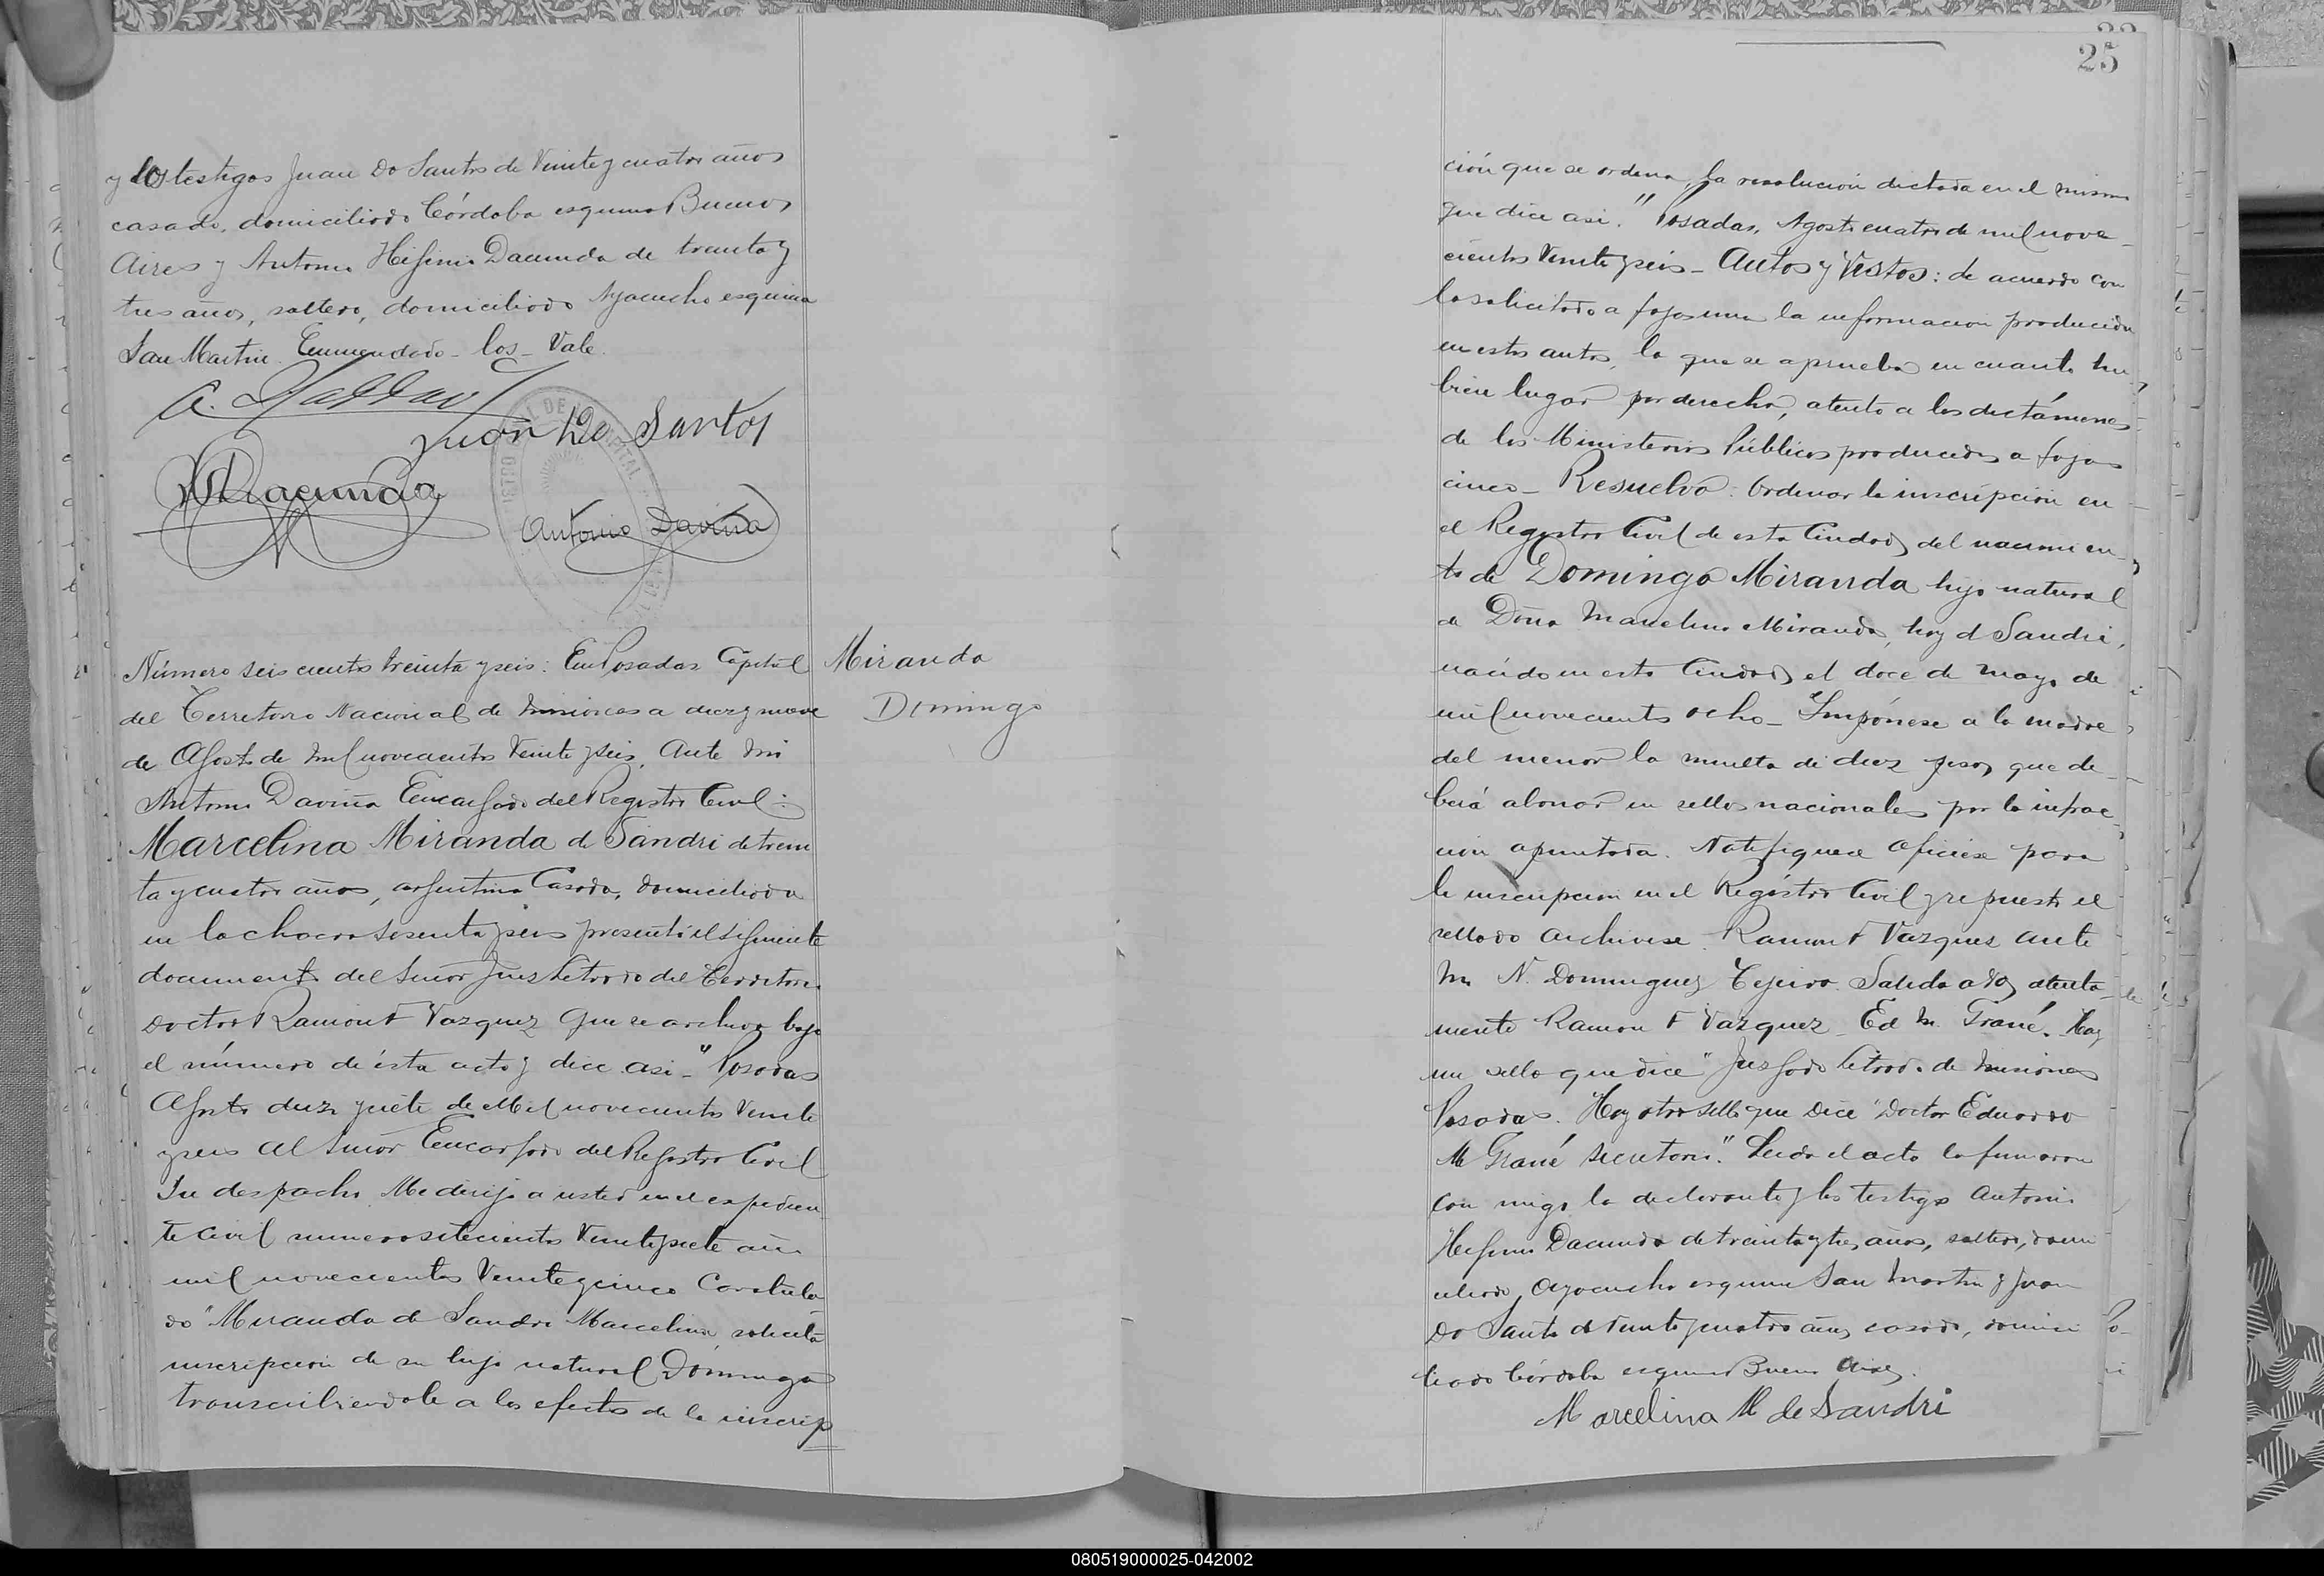 y los testigos Juan Do Santos de Veinte y cuatro años
casado, domiciliado Córdoba esquina Buenos
Aires y Antonio Hifinio Dacunda de treinta y
tres años, soltero, domiciliado Ayacucho esquina
San Martin. Enmendado - los - Vale.
Juan Do Santos
Dacunda
Antonio Daviña
Número seis cientos treinta y seis: En Posadas Capital
del Territorio Nacional de Misiones a diez y nueve
de Agosto de mil novecientos Veinte y seis, Ante mi
Antonio Daviña Encargado del Registro Civil:
Marcelina Miranda de Sandri de trein
ta y cuatro años, argentina Casada, domiciliada
en la chacra sesenta y seis presentó el siguiente
documento del Señor Juez Letrado del Territorio
Doctor Ramon F Vazquez que se archiva bajo
el número de ésta acta y dice asi - "Posadas
Agosto diez y siete de Mil novecientos Veinte
y seis al Señor Encargado del Registro Civil
Su despacho. Me dirijo a usted en el expedien
te civil numero setecientos Veinte y siete año
mil novecientos Veinte y cinco Caratula
do "Miranda de Sandri Marcelina, solicita
inscripcion de su hijo natural Domingo
transcribiendole a los efectos de la inscrip
Miranda
Domingo
25
ción que se ordena, la resolucion dictada en el mismo
que dice asi. "Posadas, Agosto cuatro de mil nove-
cientos Veinte y seis - Autos y Vistos: de acuerdo con
lo solicitado a fojas una la informacion producida
en estos autos, la que se aprueba en cuanto hu
biere lugar por derecho, atento a los dictámenes
de los Ministerios Públicos producidos a fojas
cinco - Resuelvo: Ordenar la inscripción en
el Registro Civil de esta Ciudad, del nacimien
to de Domingo Miranda hijo natural
de Doña Marcelina Miranda, hoy d Sandri,
nacido en esta Ciudad el doce de mayo de
mil novecientos ocho - Impónese a la madre
del menor la multa de diez pesos que de-
berá abonar en sellos nacionales por la infrac-
ción apuntada. Notifiquese oficiese para
la inscripcion en el Registro Civil y repuesto el
sellado archivese. Ramon F Vazquez ante
mi N. Dominguez Tejeiro. Saluda a Vd atenta
mente Ramon F Vazquez - Ed M. Grané. Hay
un sello que dice "Juzgado Letrado de Misiones
Posadas. Hay otro sello que dice "Doctor Eduardo
M Grané Secretario". Leida el acta la firmaron
con migo la declarante y los testigos Antonio
Hifinio Dacunda de treinta y tres años, soltero, domi
ciliado Ayacucho esquina San Martin y Juan
Do Santo de Veinte y cuatro años casado, domici
liado Córdoba esquina Buenos Aires.
Marcelina M de Sandri
080519000025-042002